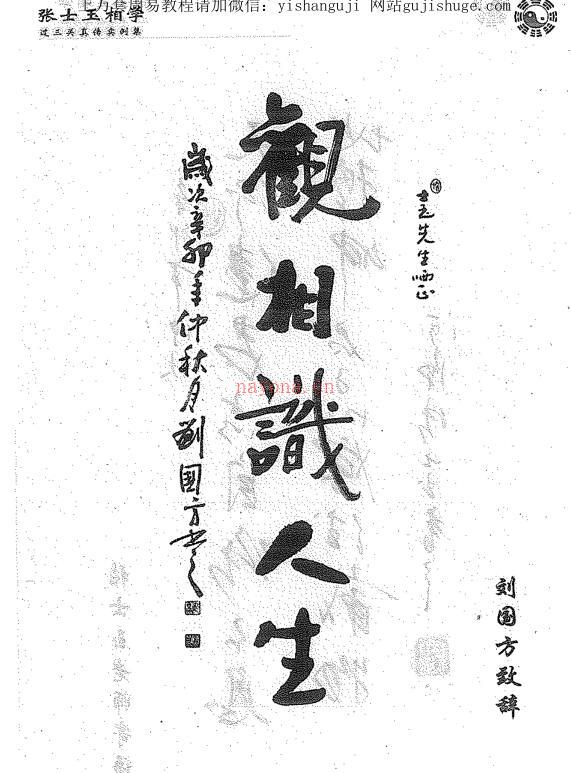 上万套周易教程请加微信：yishanguji 网站gujishuge.com
张士玉相学
过三关真传实例集
士玉先生哂正
觀相識人生
歲次辛卯年仲秋月劉國方书
刘国方致辞
nayona.cn